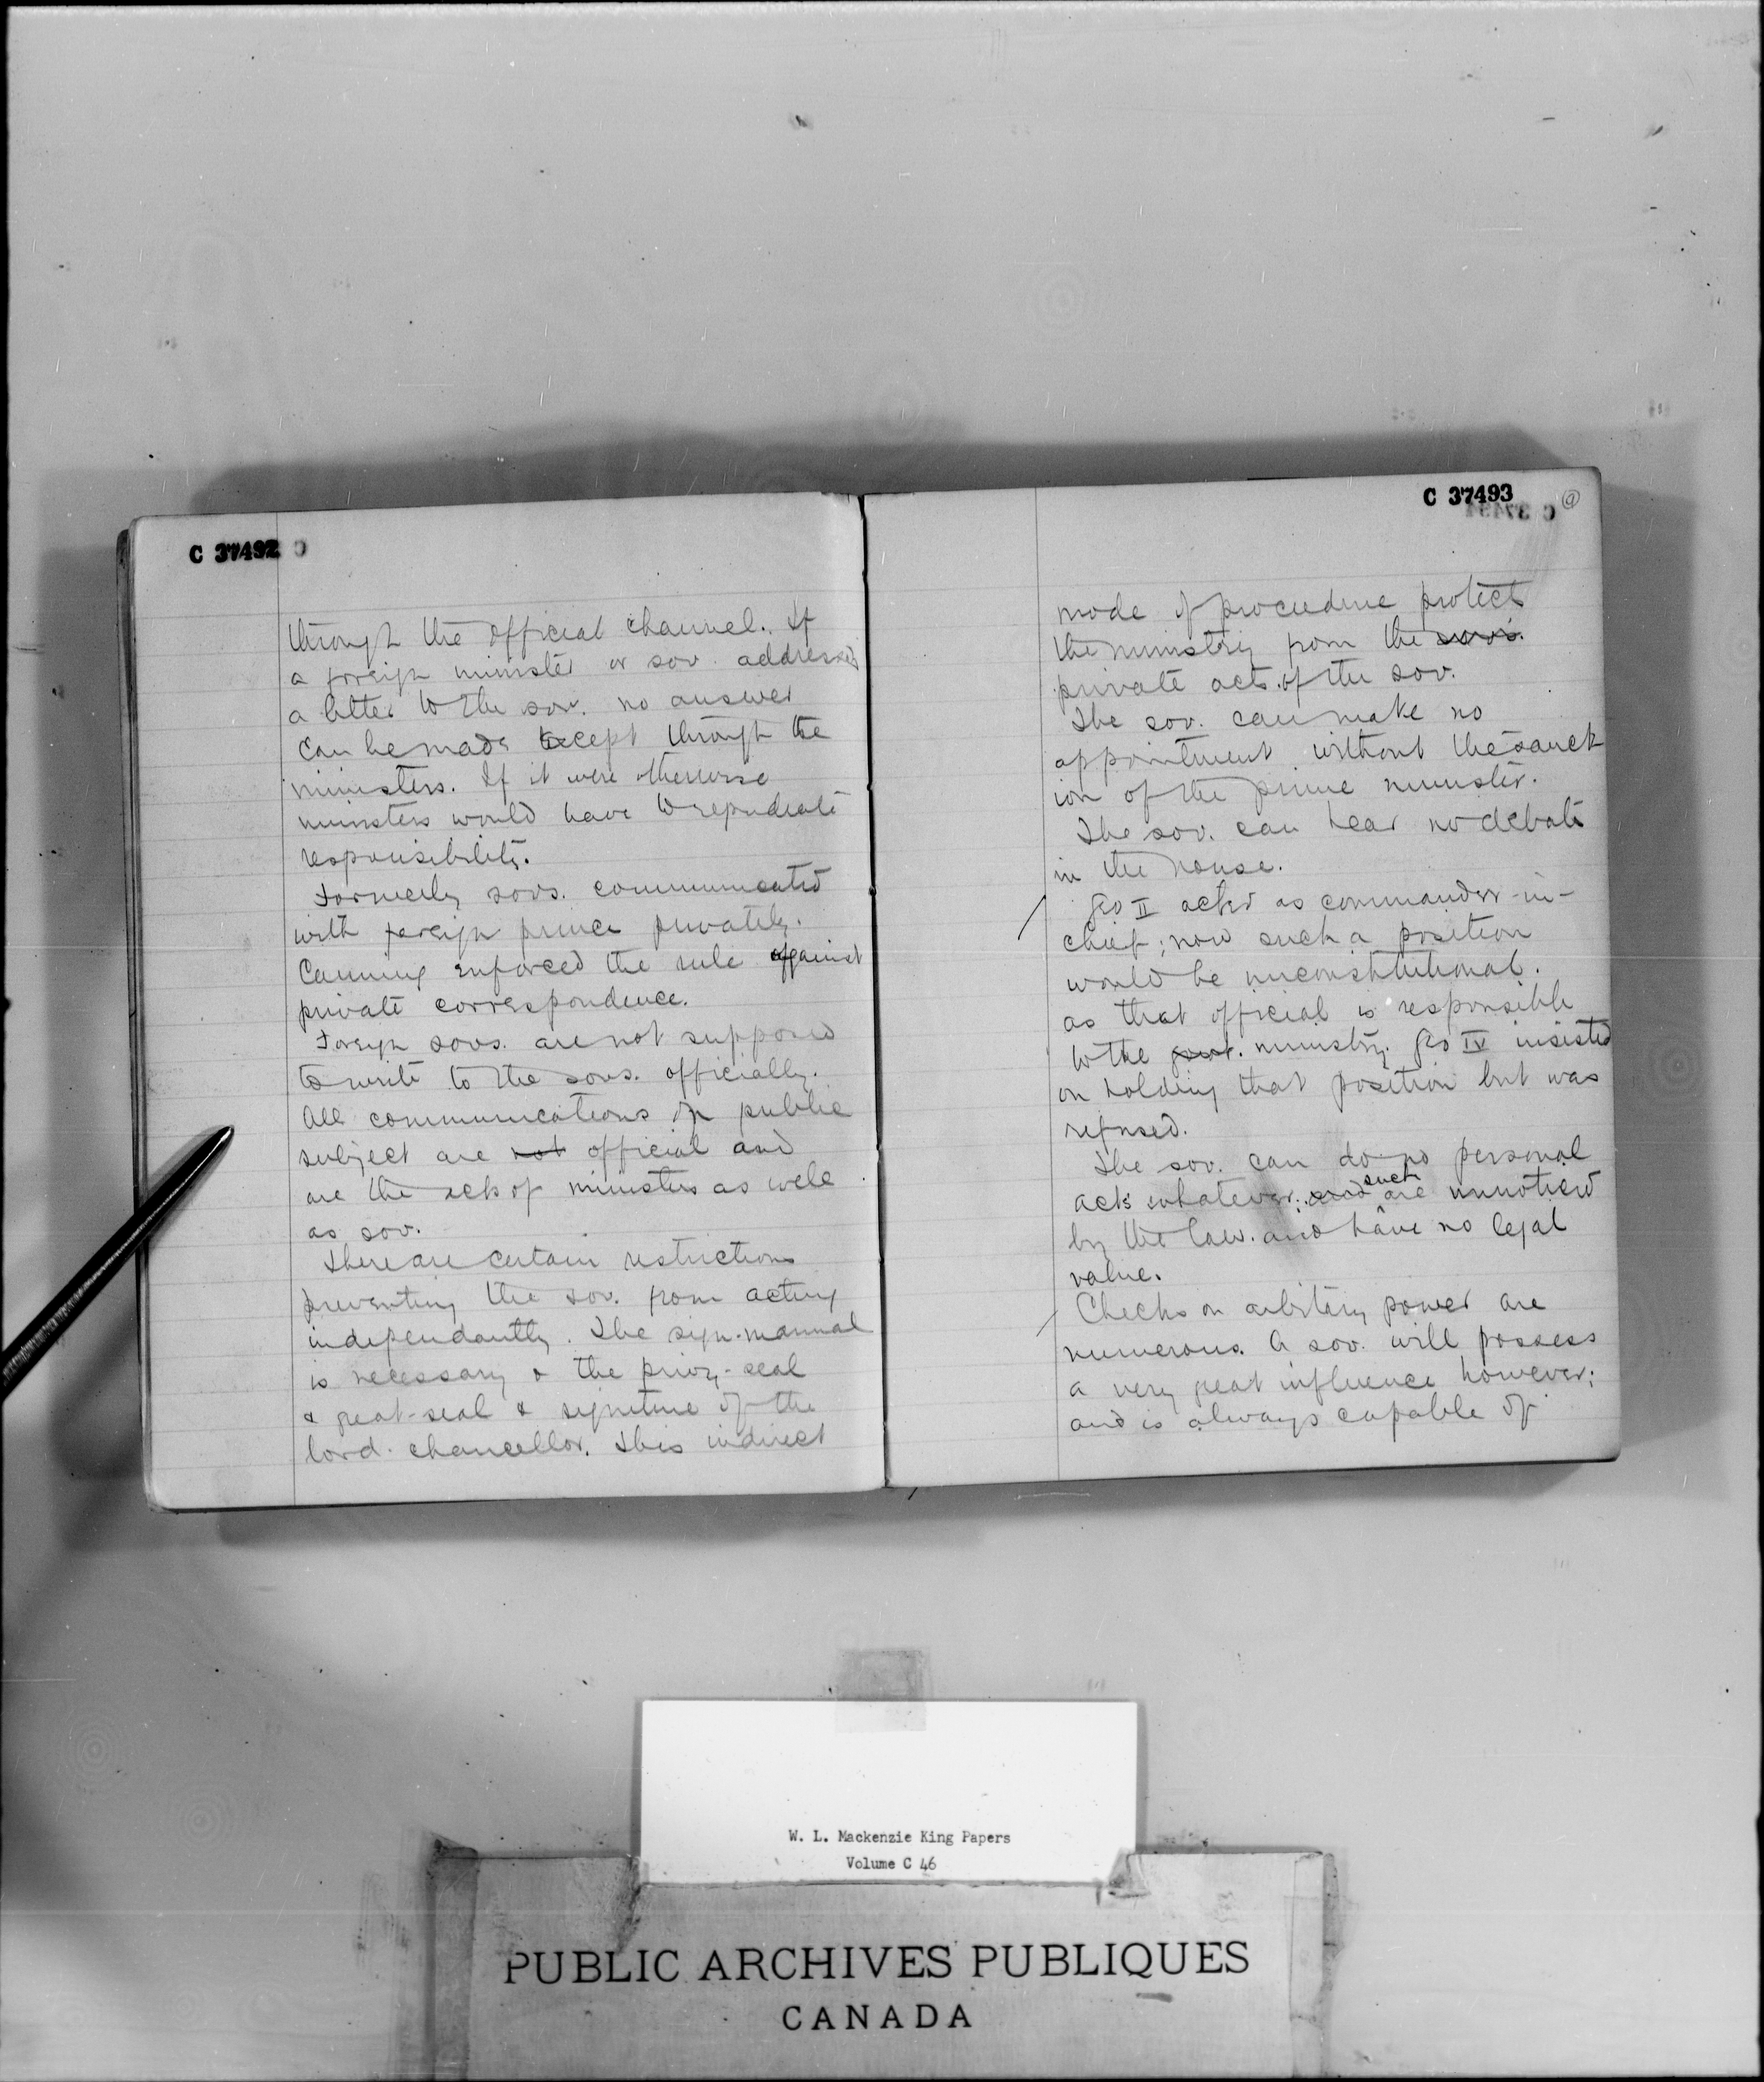 C 37492
through the official channel. If
a foreign minister or sov. addressed
a letter to the sov. no answer
can be made except through the
ministers. If it were otherwise
ministers would have to repudiate
responsibility.
Formerly sovs. communicated
with foreign prince privately.
Canning enforced the rule against
private correspondence.
Foreign sovs. are not supposed
to write to the sovs. officially.
All communications on public
subject are not official and
are the acts of ministers as well
as sov.
There are certain restrictions
preventing the sov. from acting
independantly. The sign-manual
is necessary & the privy-seal
& great-seal & signature of the
lord-chancellor. This indirect
C 37493
mode of procedure protects
the ministry from the sov's.
private acts of the sov.
The sov. can make no
appointment without the sanct
ion of the prime minister.
The sov. can hear no debate
in the house.
Geo II acted as commander-in-
chief; now such a position
would be unconstitutional.
as that official is responsible
to the govt. ministry. Geo IV insisted
on holding that position but was
refused.
The sov. can do no personal
acts whatever; and such are unnoticed
by the law. and have no legal
value.
Checks on arbitary power are
numerous. A sov. will possess
a very great influence however;
and is always capable of
W. L. Mackenzie King Papers
Volume C 46
PUBLIC ARCHIVES PUBLIQUES
CANADA